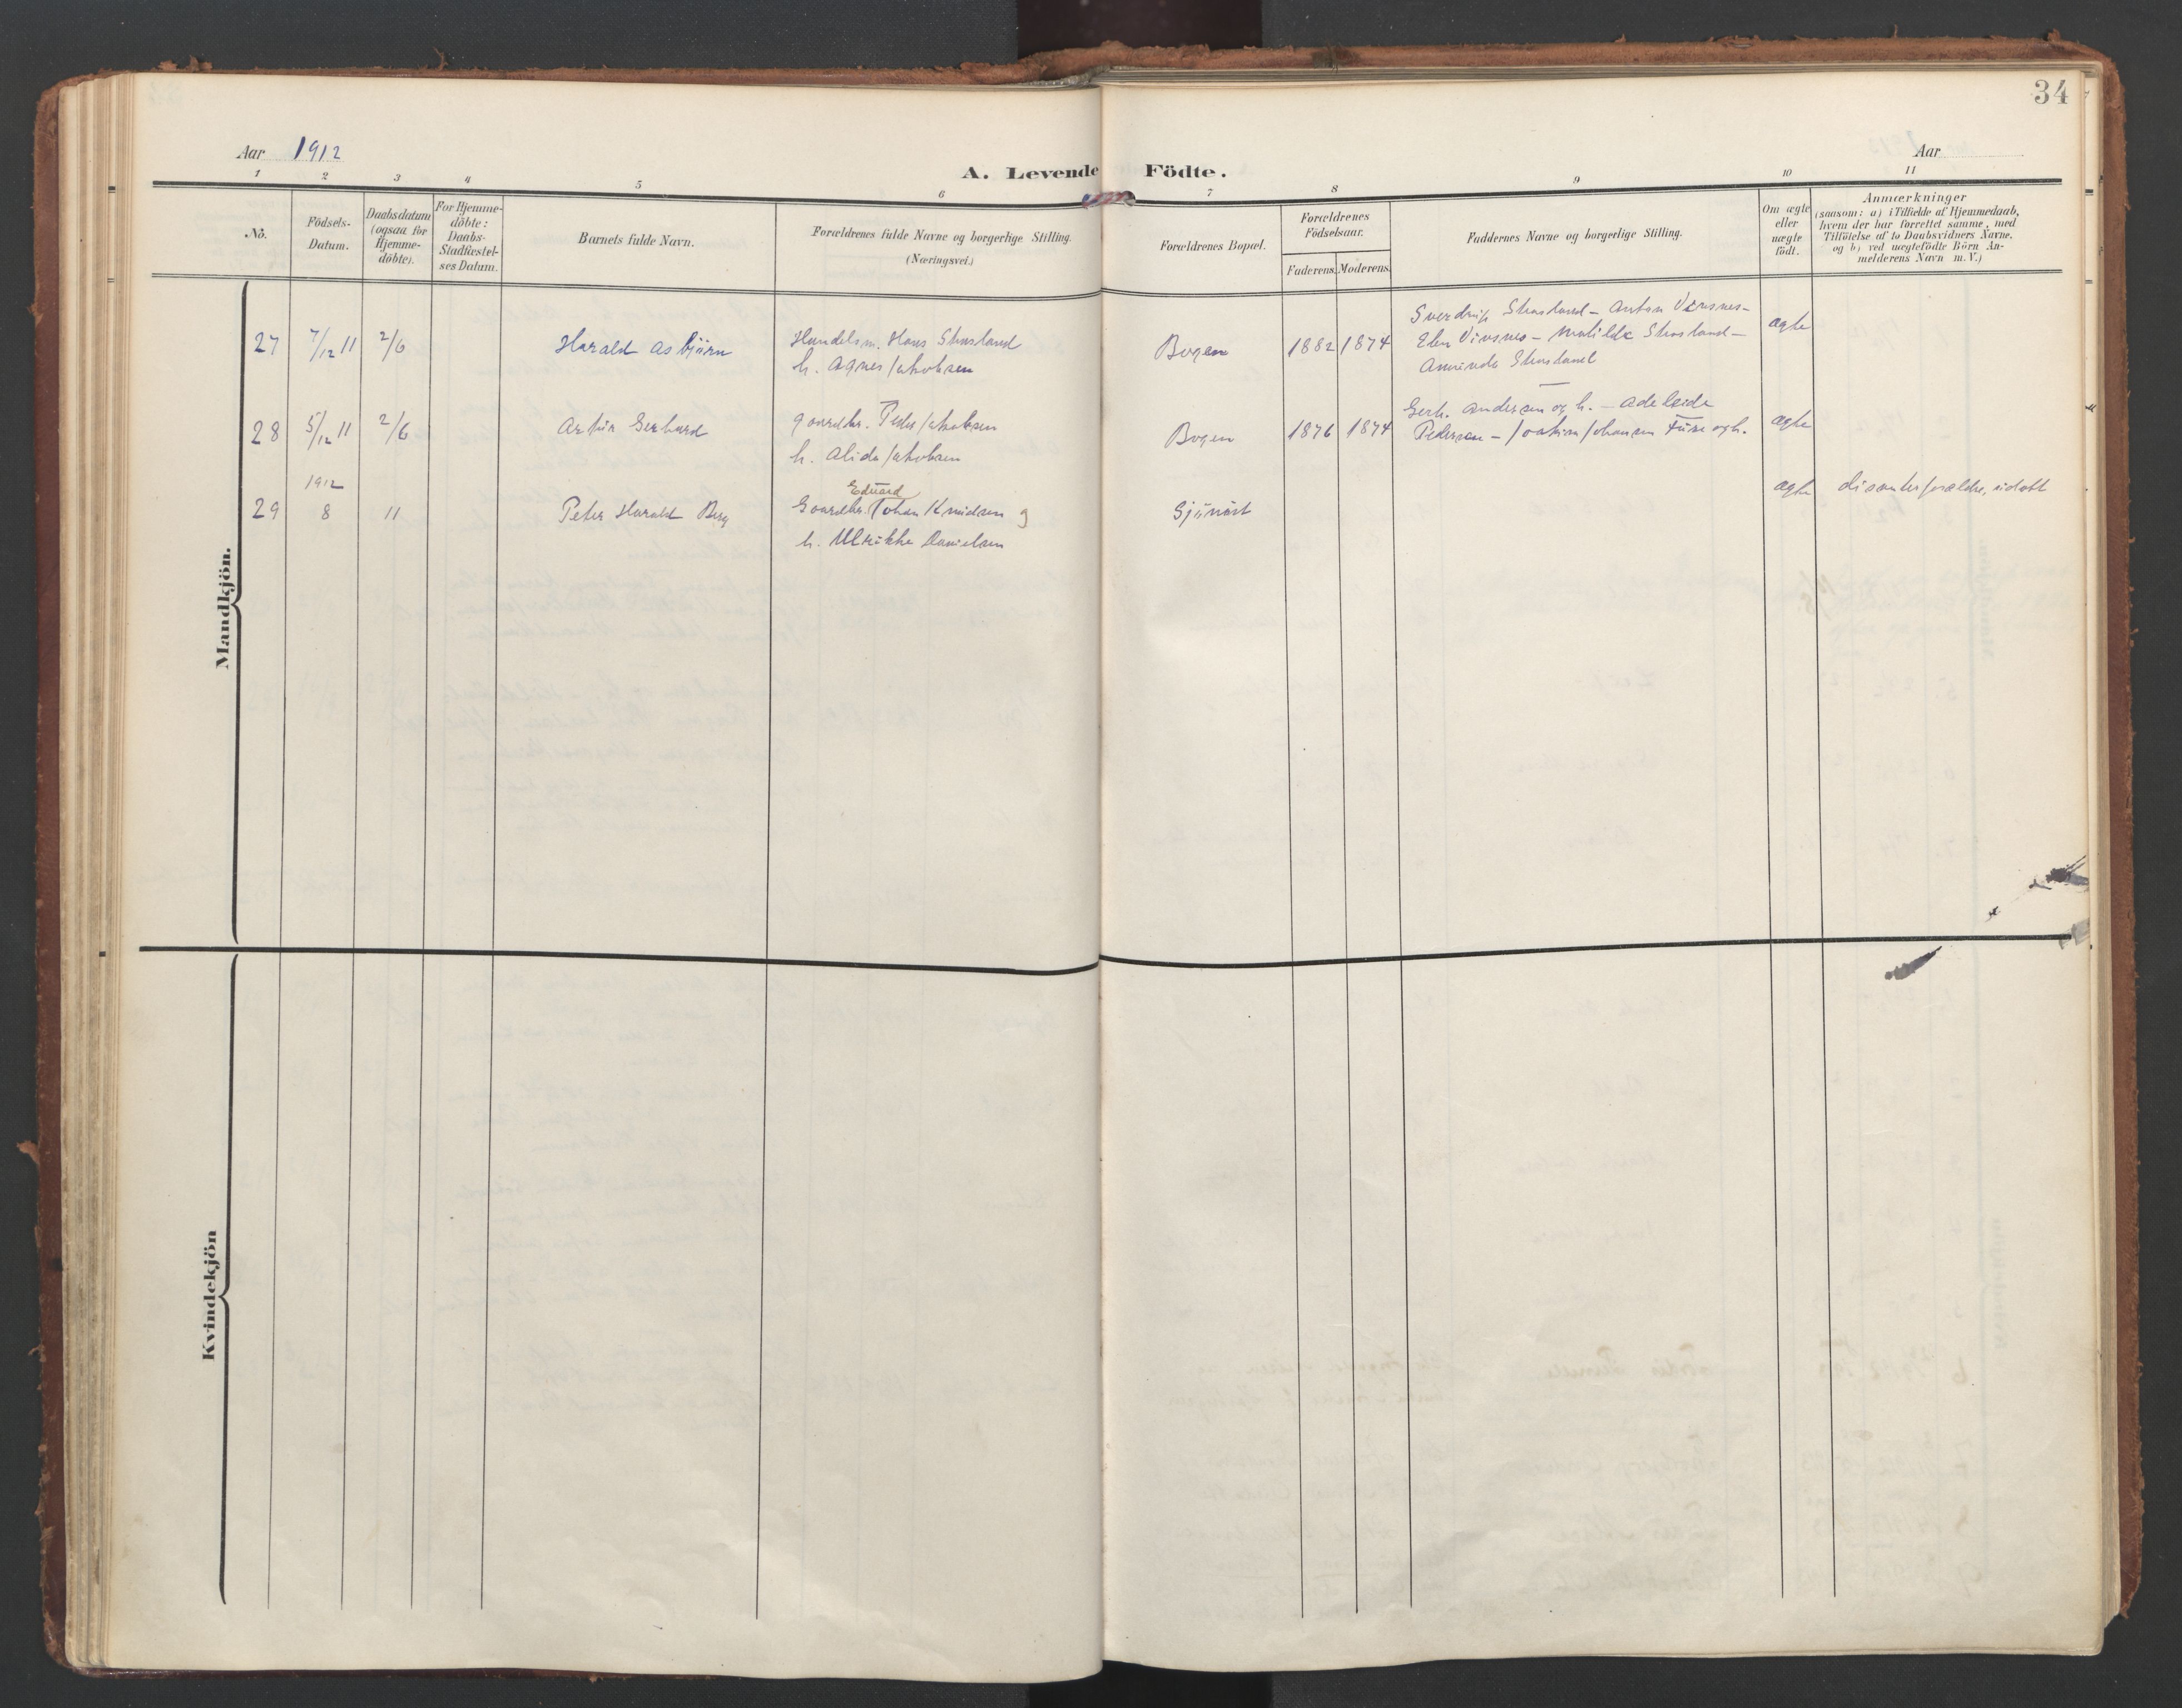 34
Aar 1912
Aar
A. Levende Födte.
1 2 3 4 5 6 7 8 9 10 11
No.
Födsels-
Datum.
Daabsdatum
(ogsaa for
Hjemme-
döbte).
For Hjemme-
döbte:
Daabs-
Stadfæstel-
ses Datum.
Barnets fulde Navn.
Forældrenes fulde Navne og borgerlige Stilling.
(Næringsvei.)
Forældrenes Bopæl.
Forældrenes
Födselsaar.
Faderens. Moderens.
Faddernes Navne og borgerlige Stilling.
Om ægte
eller
uægte
födt.
Anmærkninger
(saasom: a) i Tilfælde af Hjemmedaab,
hvem der har forrettet samme, med
Tilföielse af to Daabsvidners Navne,
og b) ved uægtefödte Börn An-
melderens Navn m. V.)
Mandkjön.
27 7/12 11 2/6 Harald Asbjörn Handelsm. Hans Stensland
h. Agnes Jakobsen
Bogen 1882 1874
Sverdrup Stensland - Anton Vinsnes -
Vinsnes - Matilde Stensland -
Stensland
ægte
28 5/12 11 2/6 Artur Gerhard gaardbr. Peder Jakobsen
h. Alida Jakobsen
Bogen 1876 1874
Gerh. Andersen og h. - Adeleide
Pedersen - Joakim Johansen Fure og h.
ægte
1912
29 8 11 Peter Harald Berg
Eduard
Gaardbr. Johan Knudsen og
h. Ulrikke Danielsen
Sjünäst
ægte
disenterforældre, udöbt
Kvindekjön